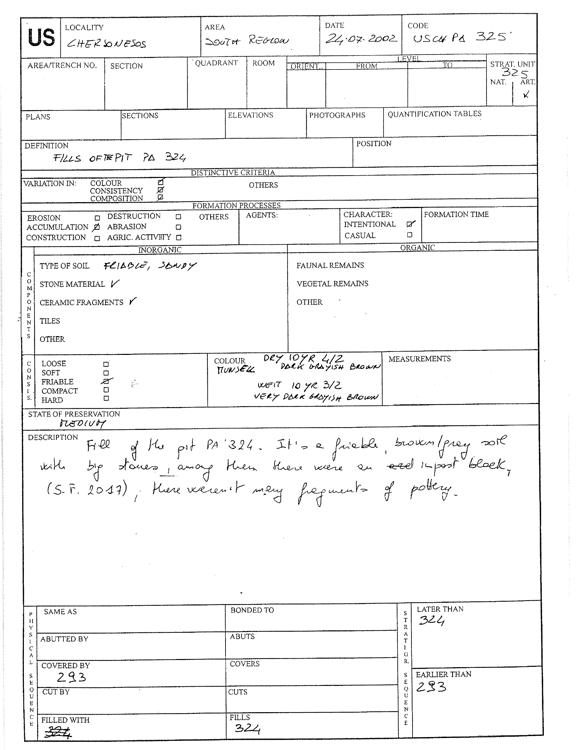 US
LOCALITY
CHERSONESOS
AREA
SOUTH REGION
DATE
24.07.2002
CODE
USCH PA 325
AREA/TRENCH NO.
SECTION
QUADRANT
ROOM
LEVEL
ORIENT.
FROM
TO
STRAT. UNIT
325
NAT.
ART.
PLANS
SECTIONS
ELEVATIONS
PHOTOGRAPHS
QUANTIFICATION TABLES
DEFINITION
FILLS OF THE PIT PA 324
POSITION
DISTINCTIVE CRITERIA
VARIATION IN:
COLOUR
CONSISTENCY
COMPOSITION
OTHERS
FORMATION PROCESSES
EROSION
ACCUMULATION
CONSTRUCTION
DESTRUCTION
ABRASION
AGRIC. ACTIVITY
OTHERS
AGENTS:
CHARACTER:
INTENTIONAL
CASUAL
FORMATION TIME
COMPONENTS
INORGANIC
ORGANIC
TYPE OF SOIL FRIABLE, SANDY
STONE MATERIAL ✓
CERAMIC FRAGMENTS ✓
TILES
OTHER
FAUNAL REMAINS
VEGETAL REMAINS
OTHER
CONSIS.
LOOSE
SOFT
FRIABLE
COMPACT
HARD
COLOUR
MUNSELL
DRY 10YR 4/2
DARK GRAYISH BROWN
WEIT 10 YR 3/2
VERY DARK GRAYISH BROWN
MEASUREMENTS
STATE OF PRESERVATION
MEDIUM
DESCRIPTION
Fill of the pit PA 324. It's a friable, brown/gray soil
with big stones, among them there were an impost block,
(S.F. 2017), there weren't many fragments of pottery.
PHYSICAL SEQUENCE
SAME AS
BONDED TO
ABUTTED BY
ABUTS
COVERED BY
293
COVERS
CUT BY
CUTS
FILLED WITH
324
FILLS
324
STRATIGR. SEQUENCE
LATER THAN
324
EARLIER THAN
293